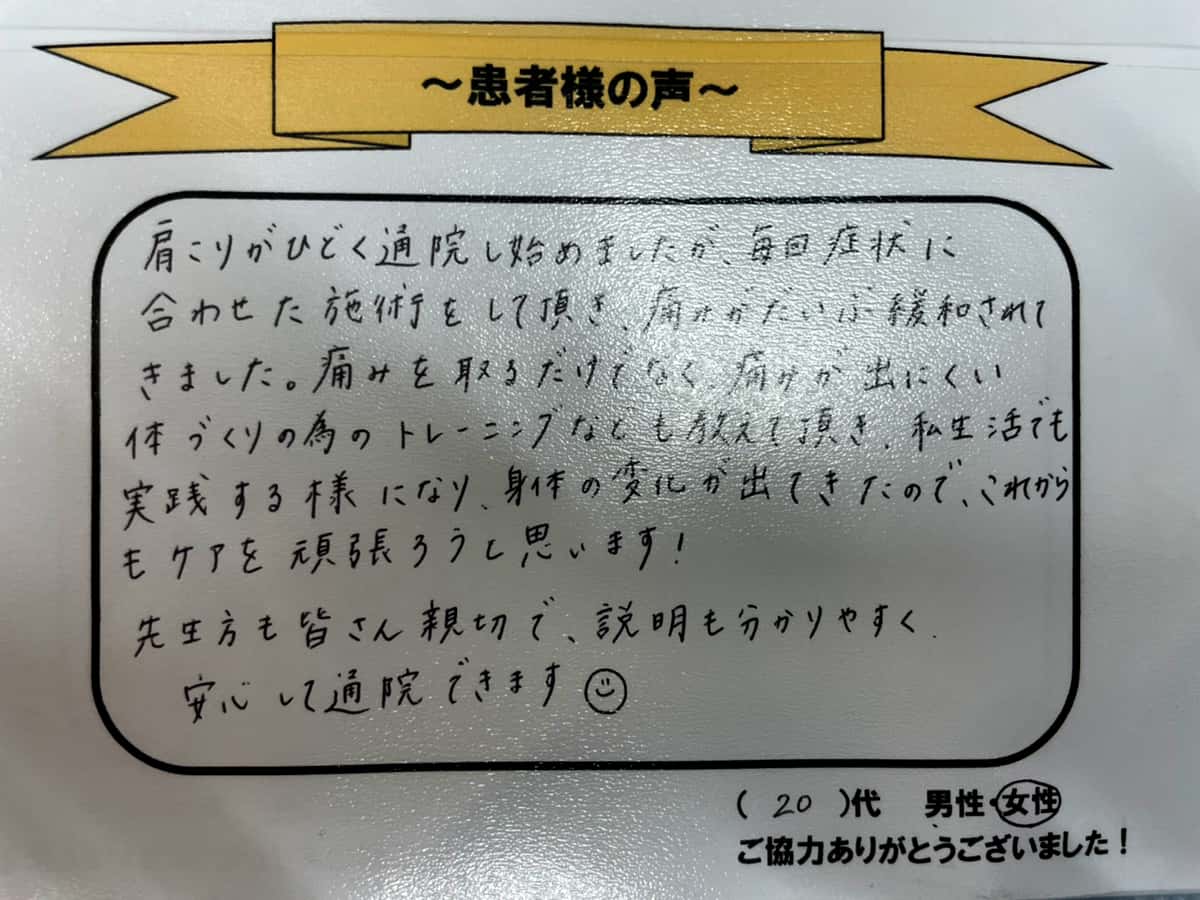 ～患者様の声～
肩こりがひどく通院し始めましたが、毎回症状に
合わせた施術をして頂き、痛みがだいぶ緩和されて
きました。痛みを取るだけでなく、痛みが出にくい
体づくりの為のトレーニングなども教えて頂き、私生活でも
実践する様になり、身体の変化が出てきたので、これから
もケアを頑張ろうと思います！
先生方も皆さん親切で、説明も分かりやすく、
安心して通院できます☺
（ 20 ）代 男性・女性
ご協力ありがとうございました！